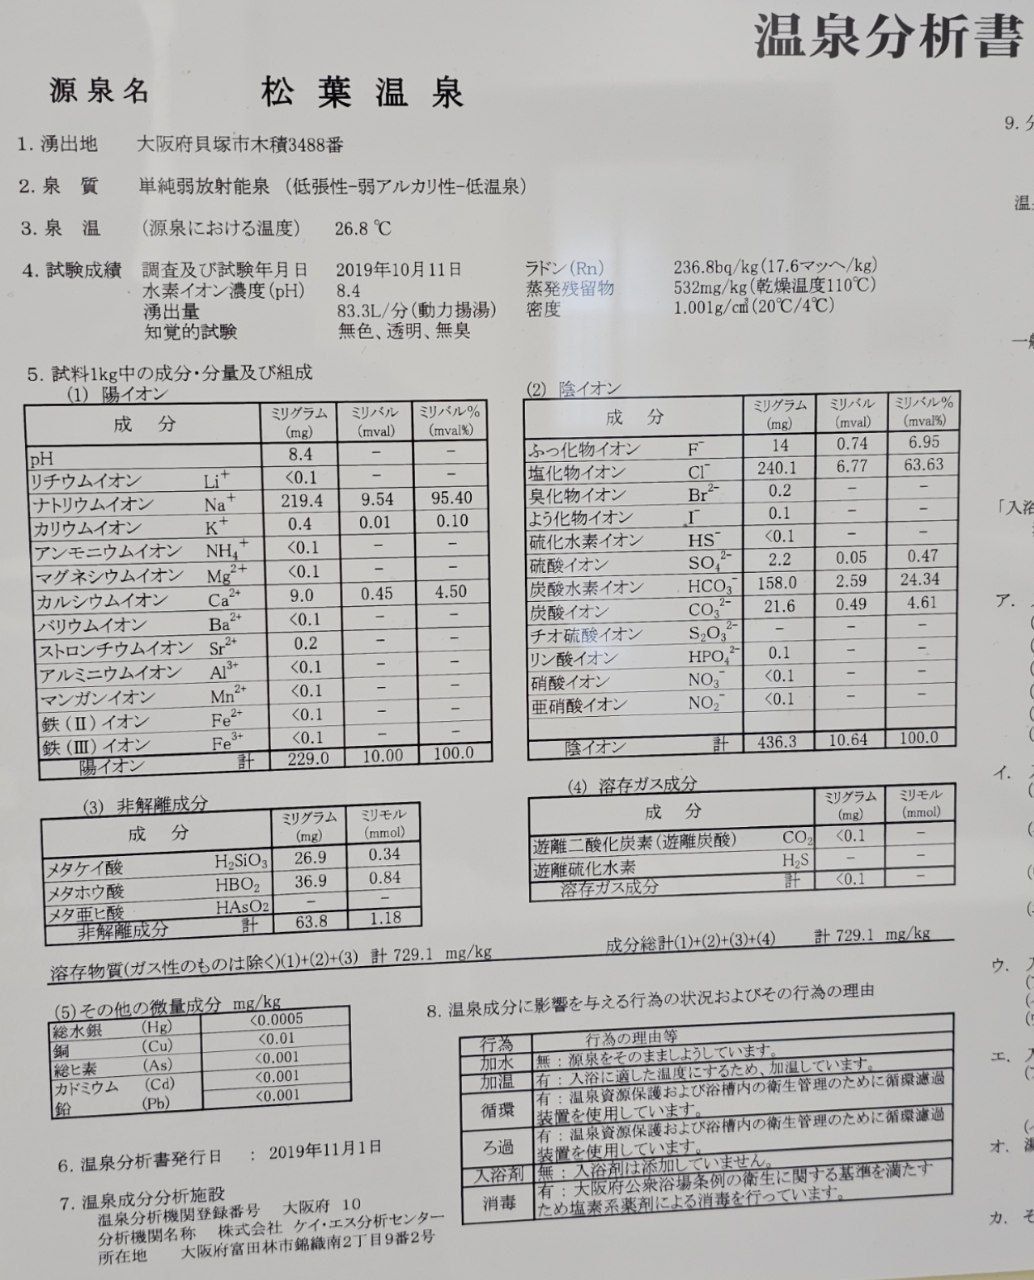 温泉分析書
源泉名 松葉温泉
1. 湧出地 大阪府貝塚市木積3488番
2. 泉 質 単純弱放射能泉 (低張性-弱アルカリ性-低温泉)
3. 泉 温 (源泉における温度) 26.8 ℃
4. 試験成績 調査及び試験年月日 2019年10月11日
水素イオン濃度(pH) 8.4
湧出量 83.3L/分(動力揚湯)
知覚的試験 無色、透明、無臭
ラドン(Rn) 236.8bq/kg(17.6マッヘ/kg)
蒸発残留物 532mg/kg(乾燥温度110℃)
密度 1.001g/c㎥(20℃/4℃)
5. 試料1kg中の成分・分量及び組成
(1) 陽イオン
成 分 ミリグラム (mg) ミリバル (mval) ミリバル% (mval%)
pH 8.4 − −
リチウムイオン Li+ <0.1 − −
ナトリウムイオン Na+ 219.4 9.54 95.40
カリウムイオン K+ 0.4 0.01 0.10
アンモニウムイオン NH4+ <0.1 − −
マグネシウムイオン Mg2+ <0.1 − −
カルシウムイオン Ca2+ 9.0 0.45 4.50
バリウムイオン Ba2+ <0.1 − −
ストロンチウムイオン Sr2+ 0.2 − −
アルミニウムイオン Al3+ <0.1 − −
マンガンイオン Mn2+ <0.1 − −
鉄(Ⅱ)イオン Fe2+ <0.1 − −
鉄(Ⅲ)イオン Fe3+ <0.1 − −
陽イオン 計 229.0 10.00 100.0
(2) 陰イオン
成 分 ミリグラム (mg) ミリバル (mval) ミリバル% (mval%)
ふっ化物イオン F− 14 0.74 6.95
塩化物イオン Cl− 240.1 6.77 63.63
臭化物イオン Br2− 0.2 − −
よう化物イオン I− 0.1 − −
硫化水素イオン HS− <0.1 − −
硫酸イオン SO42− 2.2 0.05 0.47
炭酸水素イオン HCO3− 158.0 2.59 24.34
炭酸イオン CO32− 21.6 0.49 4.61
チオ硫酸イオン S2O32− − − −
リン酸イオン HPO42− 0.1 − −
硝酸イオン NO3− <0.1 − −
亜硝酸イオン NO2− <0.1 − −
陰イオン 計 436.3 10.64 100.0
(3) 非解離成分
成 分 ミリグラム (mg) ミリモル (mmol)
メタケイ酸 H2SiO3 26.9 0.34
メタホウ酸 HBO2 36.9 0.84
メタ亜ヒ酸 HAsO2 − −
非解離成分 計 63.8 1.18
(4) 溶存ガス成分
成 分 ミリグラム (mg) ミリモル (mmol)
遊離二酸化炭素(遊離炭酸) CO2 <0.1 −
遊離硫化水素 H2S − −
溶存ガス成分 計 <0.1 −
溶存物質(ガス性のものは除く)(1)+(2)+(3) 計 729.1 mg/kg
成分総計(1)+(2)+(3)+(4) 計 729.1 mg/kg
(5)その他の微量成分 mg/kg
総水銀 (Hg) <0.0005
銅 (Cu) <0.01
総ヒ素 (As) <0.001
カドミウム (Cd) <0.001
鉛 (Pb) <0.001
6. 温泉分析書発行日 : 2019年11月1日
7. 温泉成分分析施設
温泉分析機関登録番号 大阪府 10
分析機関名称 株式会社 ケイ・エス分析センター
所在地 大阪府富田林市錦織南2丁目9番2号
8. 温泉成分に影響を与える行為の状況およびその行為の理由
行為 行為の理由等
加水 無:源泉をそのまましようしています。
加温 有:入浴に適した温度にするため、加温しています。
循環 有:温泉資源保護および浴槽内の衛生管理のために循環濾過
装置を使用しています。
ろ過 有:温泉資源保護および浴槽内の衛生管理のために循環濾過
装置を使用しています。
入浴剤 無:入浴剤は添加していません。
消毒 有:大阪府公衆浴場条例の衛生に関する基準を満たす
ため塩素系薬剤による消毒を行っています。
9.
「入浴
ア.
イ.
ウ.
エ.
オ.
カ.